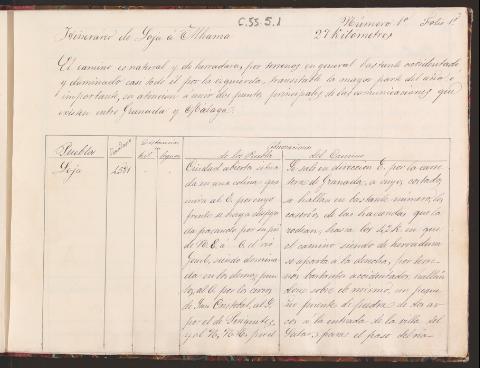 C.55.5.1
Número 1º Folio 1º
Itinerario de Loja á Alhama
27 Kilometros
El camino es natural y de herradura, por terreno en general bastante accidentado
y dominado casi todo él por la izquierda, transitable la mayor parte del año é
importante, en atencion á unir dos puntos principales de las comunicaciones que
existen entre Granada y Málaga.
Pueblos
Distancias
Kil. Leguas
Observaciones
de los Pueblos
del Camino
Loja
Ciudad abierta situa-
da en una colina que
mira al E. por cuyo
frente se haya
por su pié
de N.E. á O. el rio
Genil, siendo domina-
da en los demas pun-
tos, al O. por los cerros
de San Cristobal, al S.
por el de
y al N. N.E. por el
Se sale en direccion E. por la carre-
tera de Granada, a cuyos costados
se hallan en bastante número, los
caserios de las haciendas que la
rodean, hasta los 4,2 K. en que
el camino siendo de herradura
se aparta á la derecha, por terre-
nos bastante accidentados, hallán-
dose sobre el mismo, un peque-
ño puente de piedra de dos ar-
cos á la entrada de la villa del
Salar, para el paso del ria-